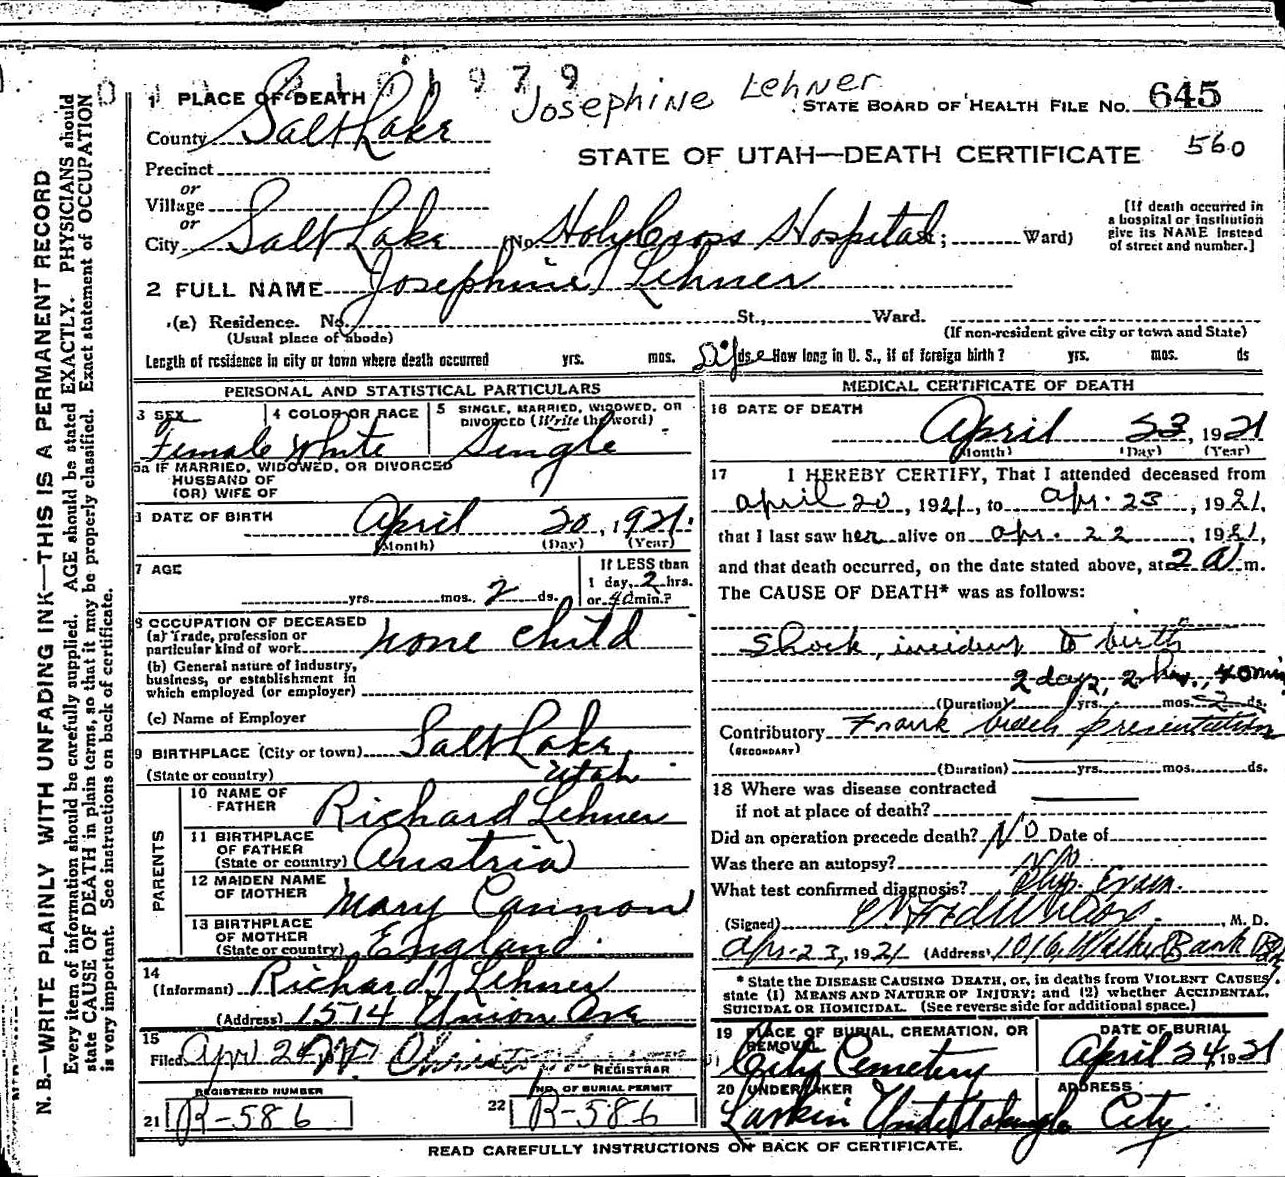 1979
Josephine Lehner
STATE BOARD OF HEALTH FILE NO. 645
560
1 PLACE OF DEATH
County Salt Lake
STATE OF UTAH—DEATH CERTIFICATE
Precinct
or
Village
or
City Salt Lake (No. Holy Cross Hospital; Ward)
[If death occurred in
a hospital or institution
give its NAME instead
of street and number.]
2 FULL NAME Josephine Lehner
(a) Residence. No. St., Ward.
(Usual place of abode) (If non-resident give city or town and State)
Length of residence in city or town where death occurred yrs. mos. Life ds. How long in U. S., if of foreign birth? yrs. mos. ds
PERSONAL AND STATISTICAL PARTICULARS
3 SEX 4 COLOR OR RACE 5 SINGLE, MARRIED, WIDOWED, OR
DIVORCED (Write the word)
Female White Single
5a IF MARRIED, WIDOWED, OR DIVORCED
HUSBAND OF
(OR) WIFE OF
DATE OF BIRTH April 20, 1921.
(Month) (Day) (Year)
7 AGE If LESS than
1 day, 2 hrs.
yrs. mos. 2 ds. or 40 min.?
8 OCCUPATION OF DECEASED
(a) Trade, profession or
particular kind of work none child
(b) General nature of industry,
business, or establishment in
which employed (or employer)
(c) Name of Employer
9 BIRTHPLACE (City or town) Salt Lake
(State or country) Utah
PARENTS
10 NAME OF
FATHER Richard Lehner
11 BIRTHPLACE
OF FATHER
(State or country) Austria
12 MAIDEN NAME
OF MOTHER Mary Cannon
13 BIRTHPLACE
OF MOTHER
(State or country) England.
14
(Informant) Richard Lehner
(Address) 1514 Union Ave
15
Filed Apr 24
REGISTRAR
REGISTERED NUMBER NO. OF BURIAL PERMIT
21 R-586 22 R-586
MEDICAL CERTIFICATE OF DEATH
16 DATE OF DEATH
April 23, 1921
(Month) (Day) (Year)
17 I HEREBY CERTIFY, That I attended deceased from
April 20, 1921, to Apr. 23, 1921,
that I last saw her alive on Apr. 22, 1921,
and that death occurred, on the date stated above, at 2 A m.
The CAUSE OF DEATH* was as follows:
Shock, incident to birth
2 days, 2 hrs., 40 min
(Duration) yrs. mos. 2 ds.
Contributory Frank breech presentation
(SECONDARY)
(Duration) yrs. mos. ds.
18 Where was disease contracted
if not at place of death?
Did an operation precede death? No Date of
Was there an autopsy? No.
What test confirmed diagnosis? Phys. Exam.
(Signed) , M. D.
Apr. 23, 1921 (Address) 1016 Walker Bank Bldg
* State the DISEASE CAUSING DEATH, or, in deaths from VIOLENT CAUSES,
state (1) MEANS AND NATURE OF INJURY; and (2) whether ACCIDENTAL,
SUICIDAL OR HOMICIDAL. (See reverse side for additional space.)
19 PLACE OF BURIAL, CREMATION, OR
REMOVAL DATE OF BURIAL
City Cemetery April 24, 1921
20 UNDERTAKER ADDRESS
Larkin Undertaking Co City
READ CAREFULLY INSTRUCTIONS ON BACK OF CERTIFICATE.
N. B.—WRITE PLAINLY WITH UNFADING INK—THIS IS A PERMANENT RECORD
Every item of information should be carefully supplied. AGE should be stated EXACTLY. PHYSICIANS should
state CAUSE OF DEATH in plain terms, so that it may be properly classified. Exact statement of OCCUPATION
is very important. See instructions on back of certificate.